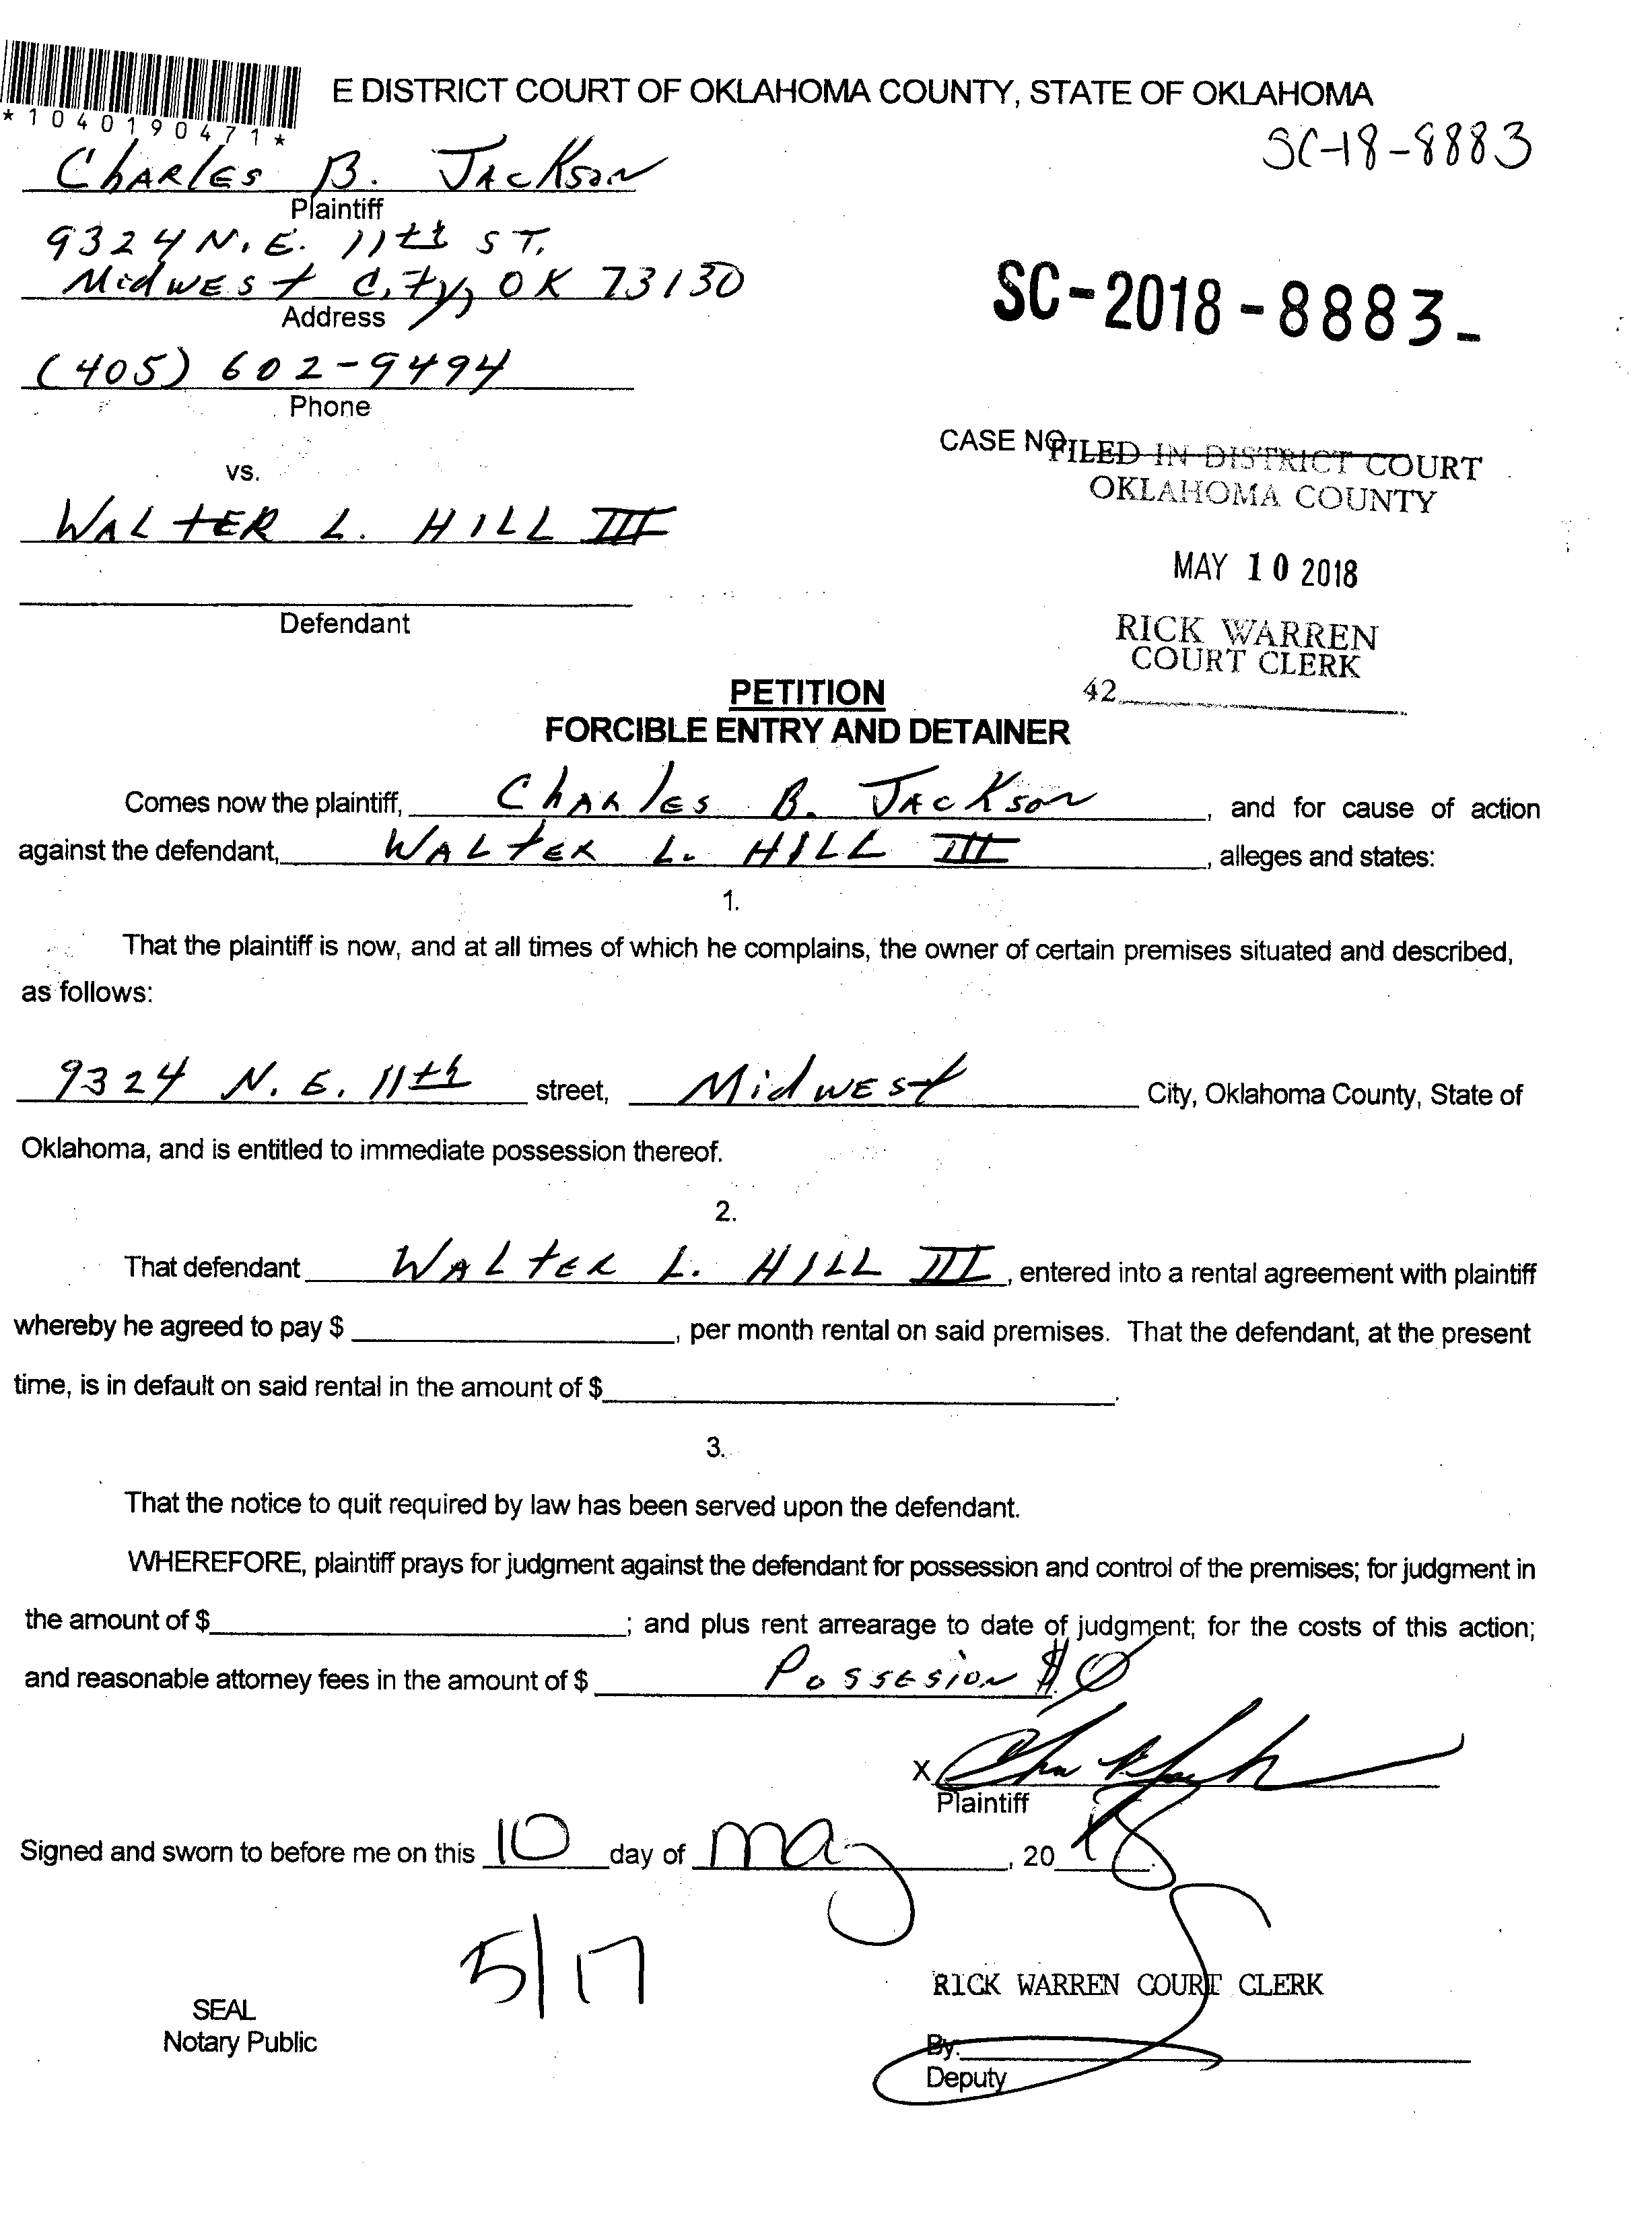 E DISTRICT COURT OF OKLAHOMA COUNTY, STATE OF OKLAHOMA
*1040190471*
SC-18-8883
Charles B. Jackson
Plaintiff
9324 N.E. 11th ST.
Midwest City, OK 73130
Address
SC-2018-8883-
(405) 602-9494
Phone
CASE NO. FILED IN DISTRICT COURT
OKLAHOMA COUNTY
vs.
WALTER L. HILL III
MAY 10 2018
Defendant
RICK WARREN
COURT CLERK
42
PETITION
FORCIBLE ENTRY AND DETAINER
Comes now the plaintiff, Charles B. Jackson, and for cause of action
against the defendant, WALTER L. HILL III, alleges and states:
1.
That the plaintiff is now, and at all times of which he complains, the owner of certain premises situated and described,
as follows:
9324 N.E. 11th street, Midwest City, Oklahoma County, State of
Oklahoma, and is entitled to immediate possession thereof.
2.
That defendant WALTER L. HILL III, entered into a rental agreement with plaintiff
whereby he agreed to pay $, per month rental on said premises. That the defendant, at the present
time, is in default on said rental in the amount of $.
3.
That the notice to quit required by law has been served upon the defendant.
WHEREFORE, plaintiff prays for judgment against the defendant for possession and control of the premises; for judgment in
the amount of $; and plus rent arrearage to date of judgment; for the costs of this action;
and reasonable attorney fees in the amount of $ Possesion $0
X
Plaintiff
Signed and sworn to before me on this 10 day of May, 2018.
5/17
RICK WARREN COURT CLERK
SEAL
Notary Public
By:
Deputy